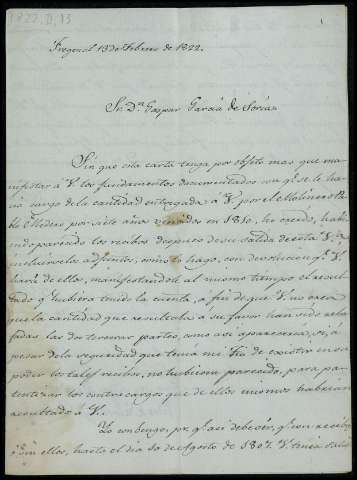 1822.II.13
1
Fregenal 13 de Febrero de 1822.
Sr. Dn. Gaspar García de Soria
Sin que esta carta tenga por objeto mas que ma-
nifestar á V. los fundamentos documentados con qe. se le ha
hecho cargo de la cantidad entregada á V. por el Molinero Pa-
blo Medero por siete años vencidos en 1810, he creido, habi-
endo parecido los recibos despues de su salida de esta V.
incluirsela adjuntos, como lo hago, con devolucion qe. V.
hará de ellos, manifestandole al mismo tiempo el resul-
tado qe. hubiera tenido la cuenta, a fin de que V. no crea
que la cantidad que resultaba á su favor han sido reba-
jadas las dos terceras partes, como así apareceria, si, á
pesar de la seguridad que tenia mi Tia de existir en su
poder los tales recibos, no hubieran parecido, para pa-
tentizar los contra cargos que de ellos mismos habrian
resultado á V.
Yo combengo, por qe. así debe ser, qe. con recibos
ó sin ellos, hasta el dia 10 de Agosto de 1807. V. tenia